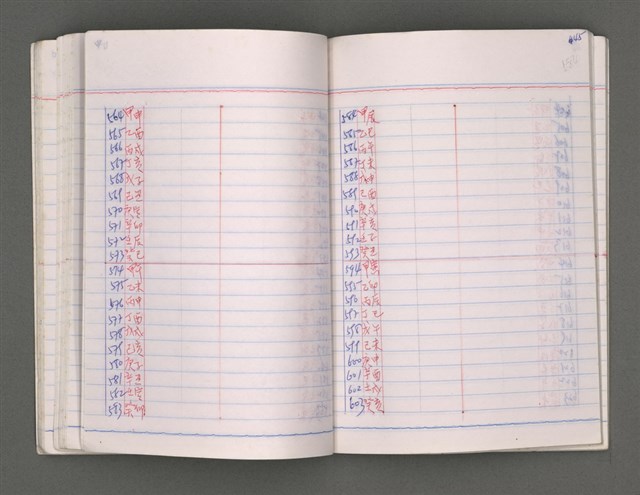 564 甲申
565 乙酉
566 丙戌
567 丁亥
568 戊子
569 己丑
570 庚寅
571 辛卯
572 壬辰
573 癸巳
574 甲午
575 乙未
576 丙申
577 丁酉
578 戊戌
579 己亥
580 庚子
581 辛丑
582 壬寅
583 癸卯
584 甲辰
585 乙巳
586 丙午
587 丁未
588 戊申
589 己酉
590 庚戌
591 辛亥
592 壬子
593 癸丑
594 甲寅
595 乙卯
596 丙辰
597 丁巳
598 戊午
599 己未
600 庚申
601 辛酉
602 壬戌
603 癸亥